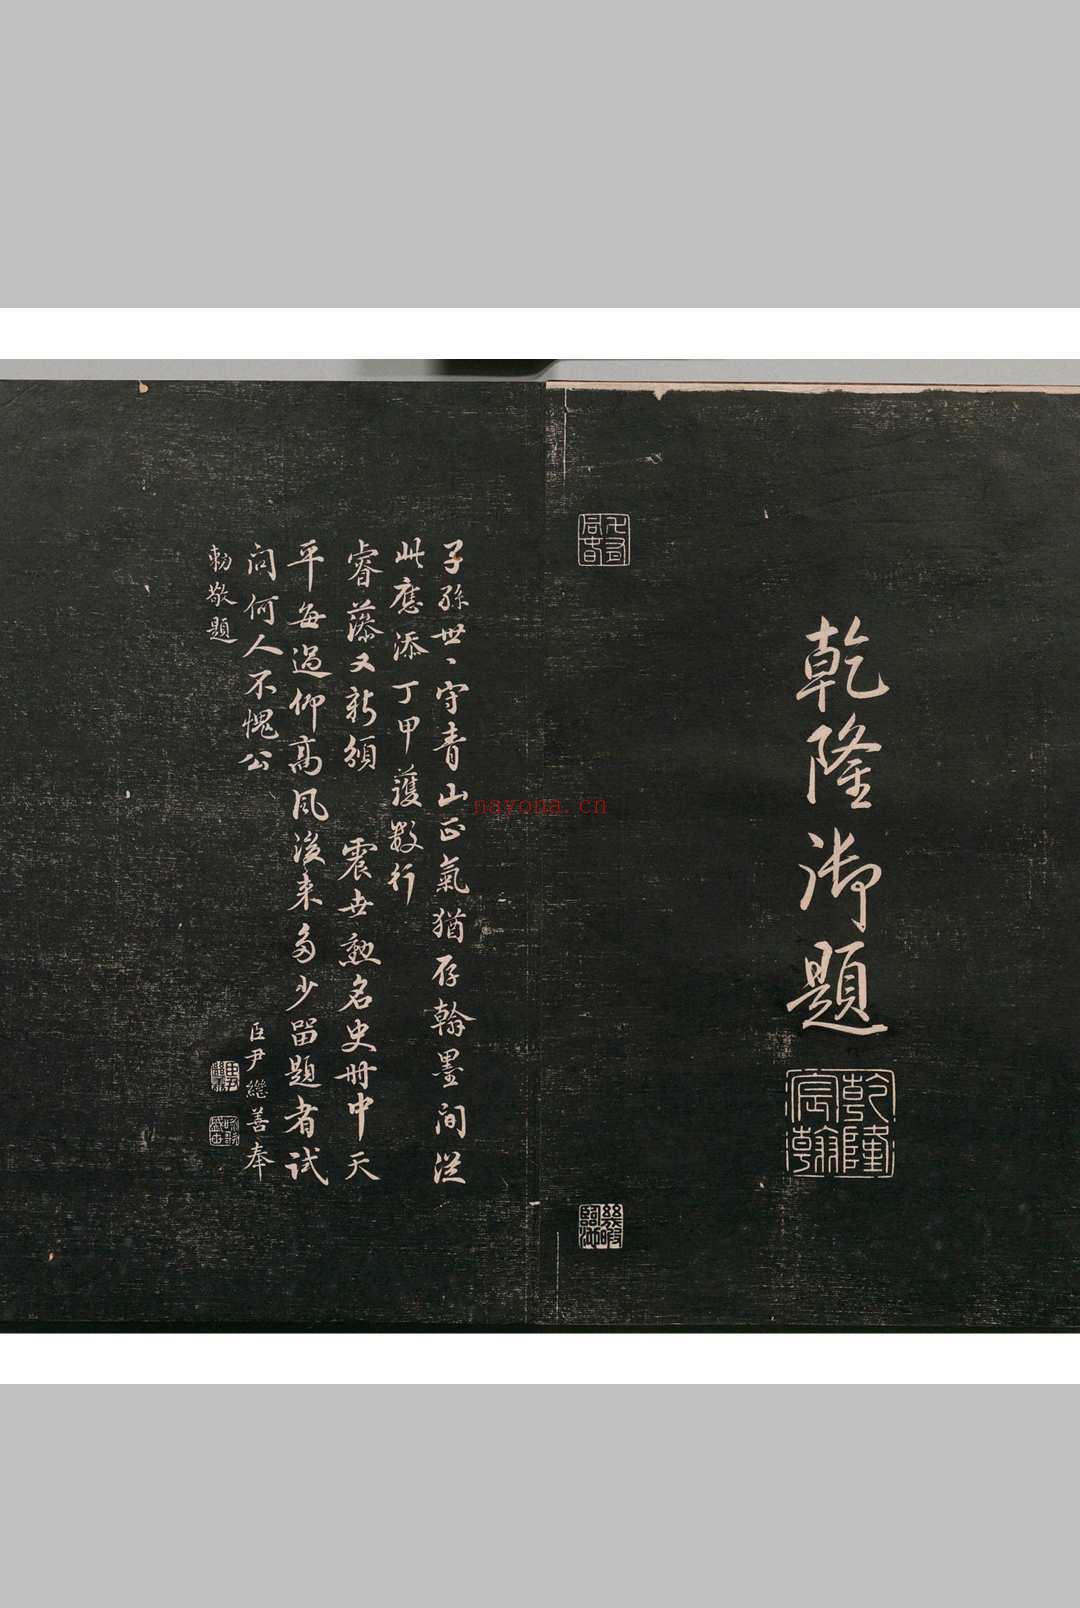 乾隆御題
乾隆宸翰
幾暇臨池
子孫世〻守青山正氣猶存翰墨間從
此應添丁甲護數行
睿藻又新頒 震世勲名史冊中天
平每過仰高風後来多少留題者試
問何人不愧公 臣尹繼善奉
勅敬題
臣尹繼善
nayona.cn